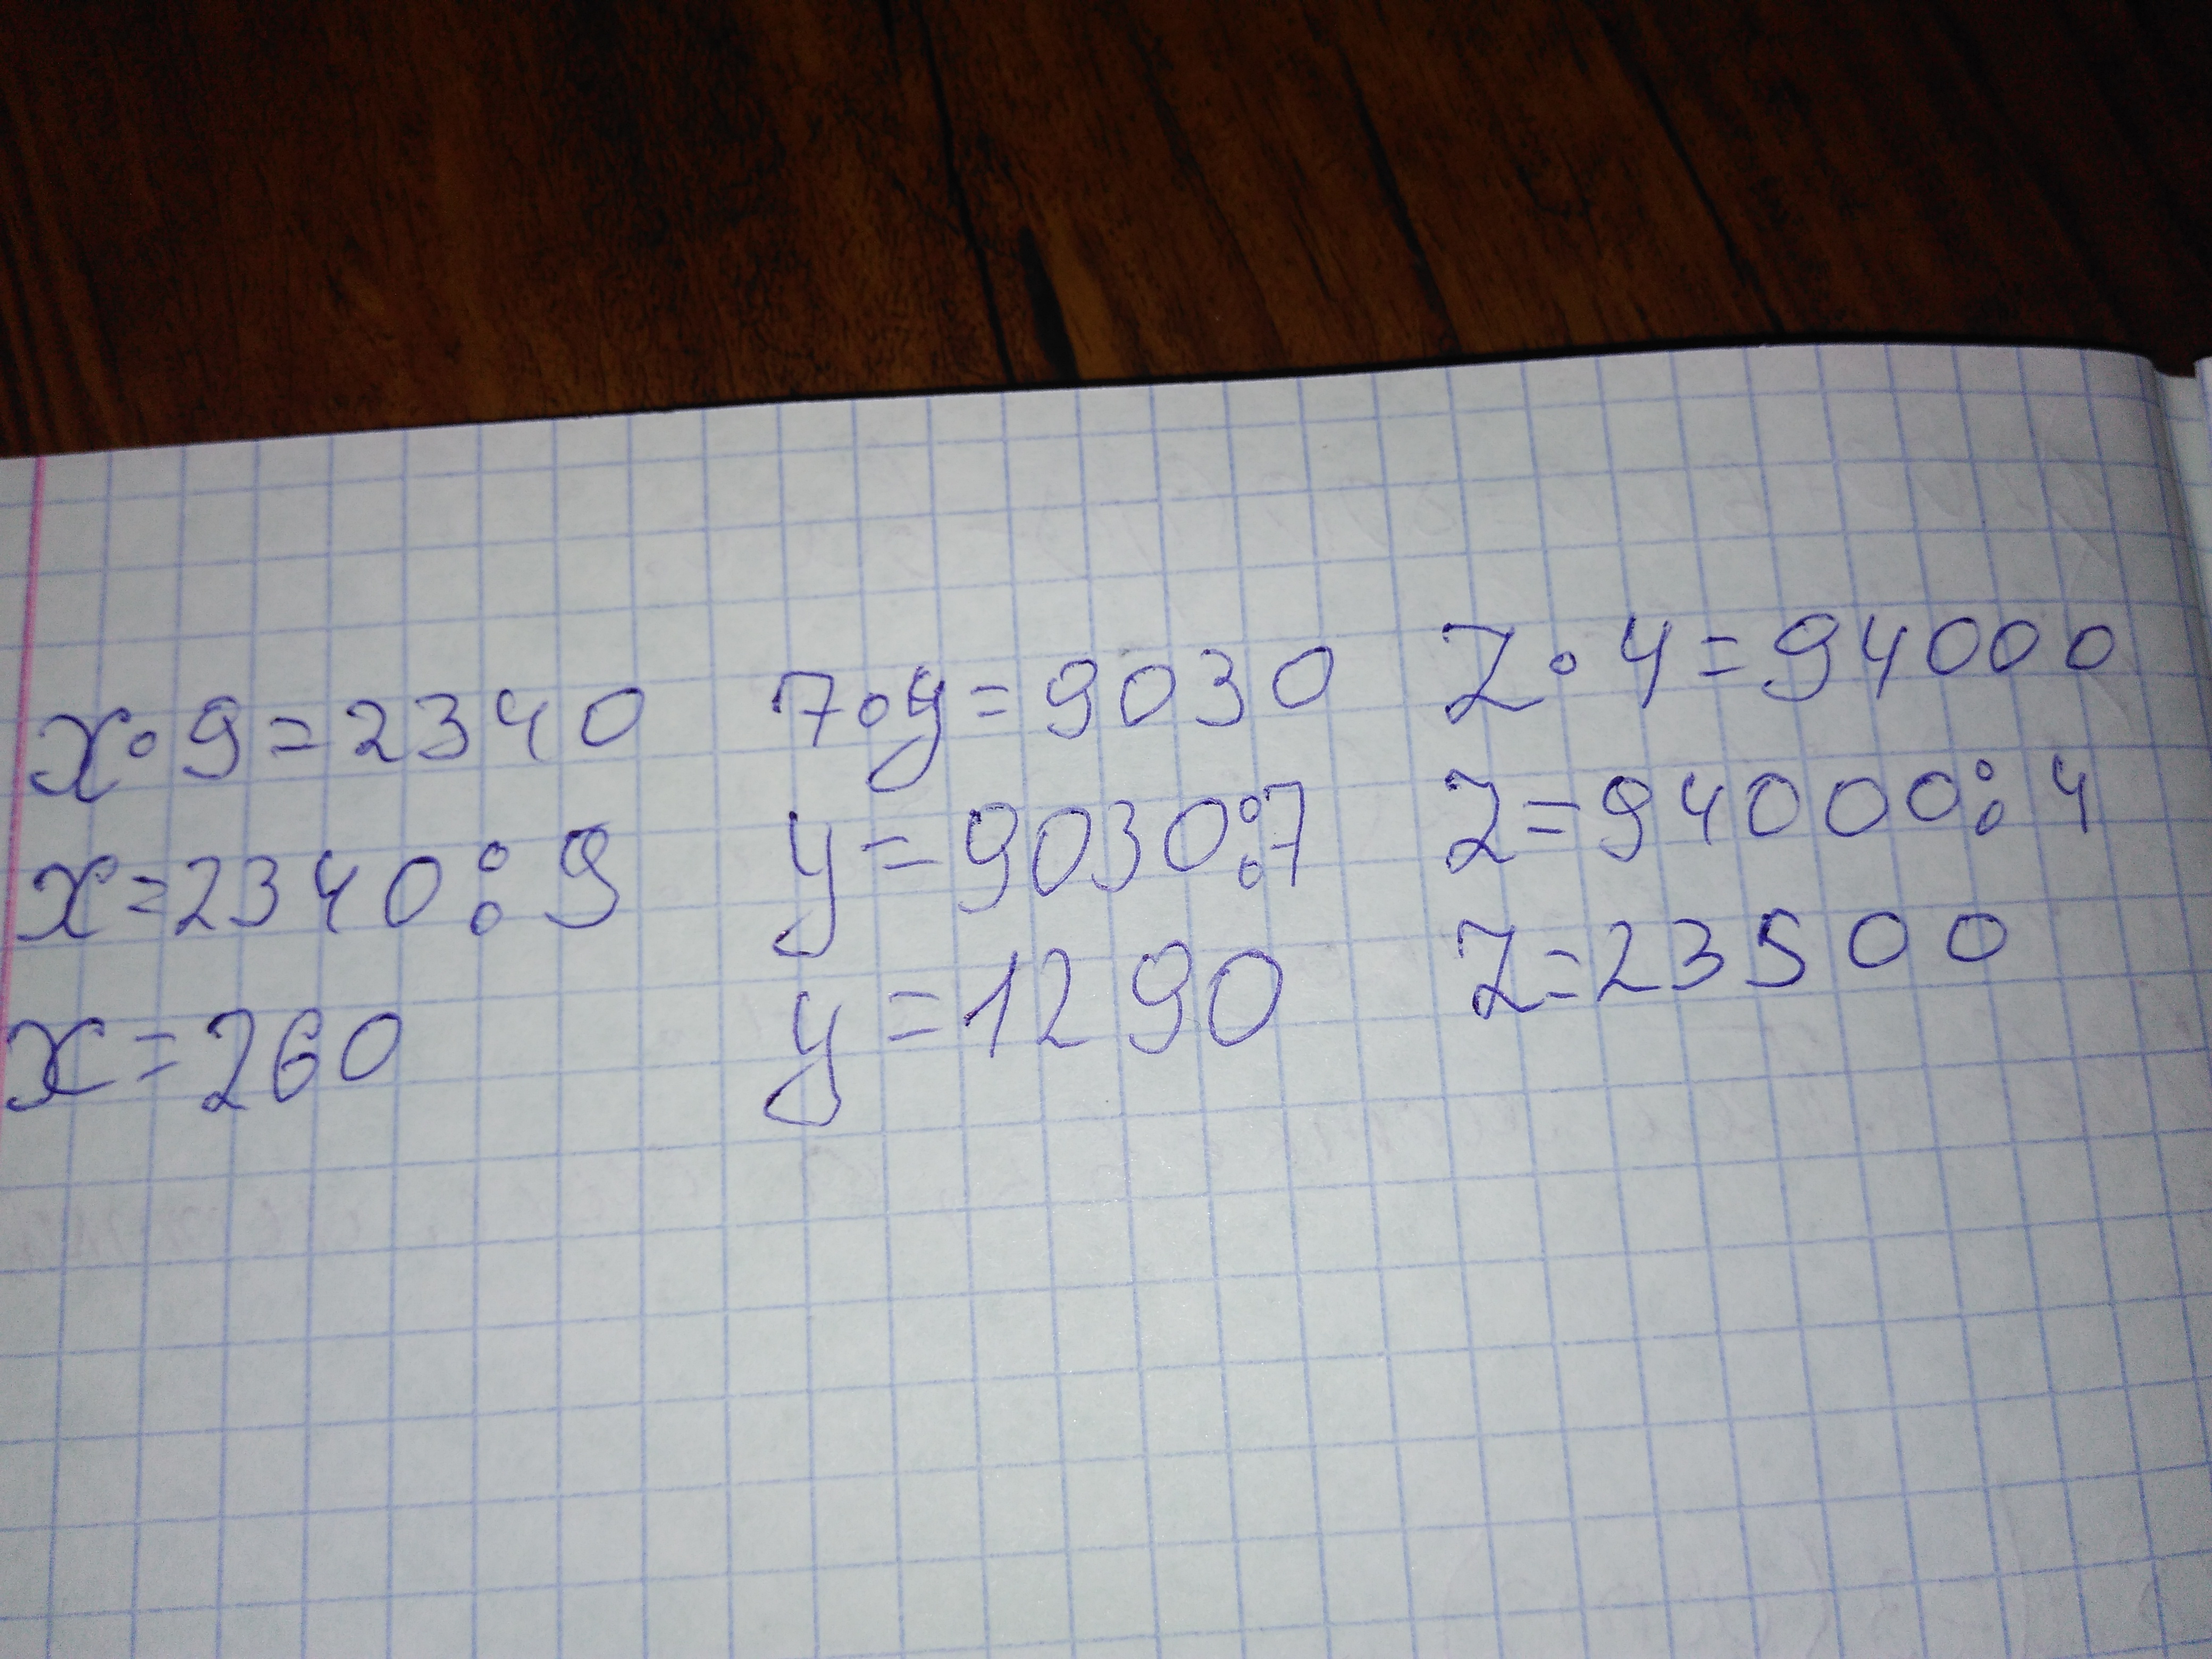 x·9=2340
x=2340:9
x=260
7·y=9030
y=9030:7
y=1290
z·4=94000
z=94000:4
z=23500